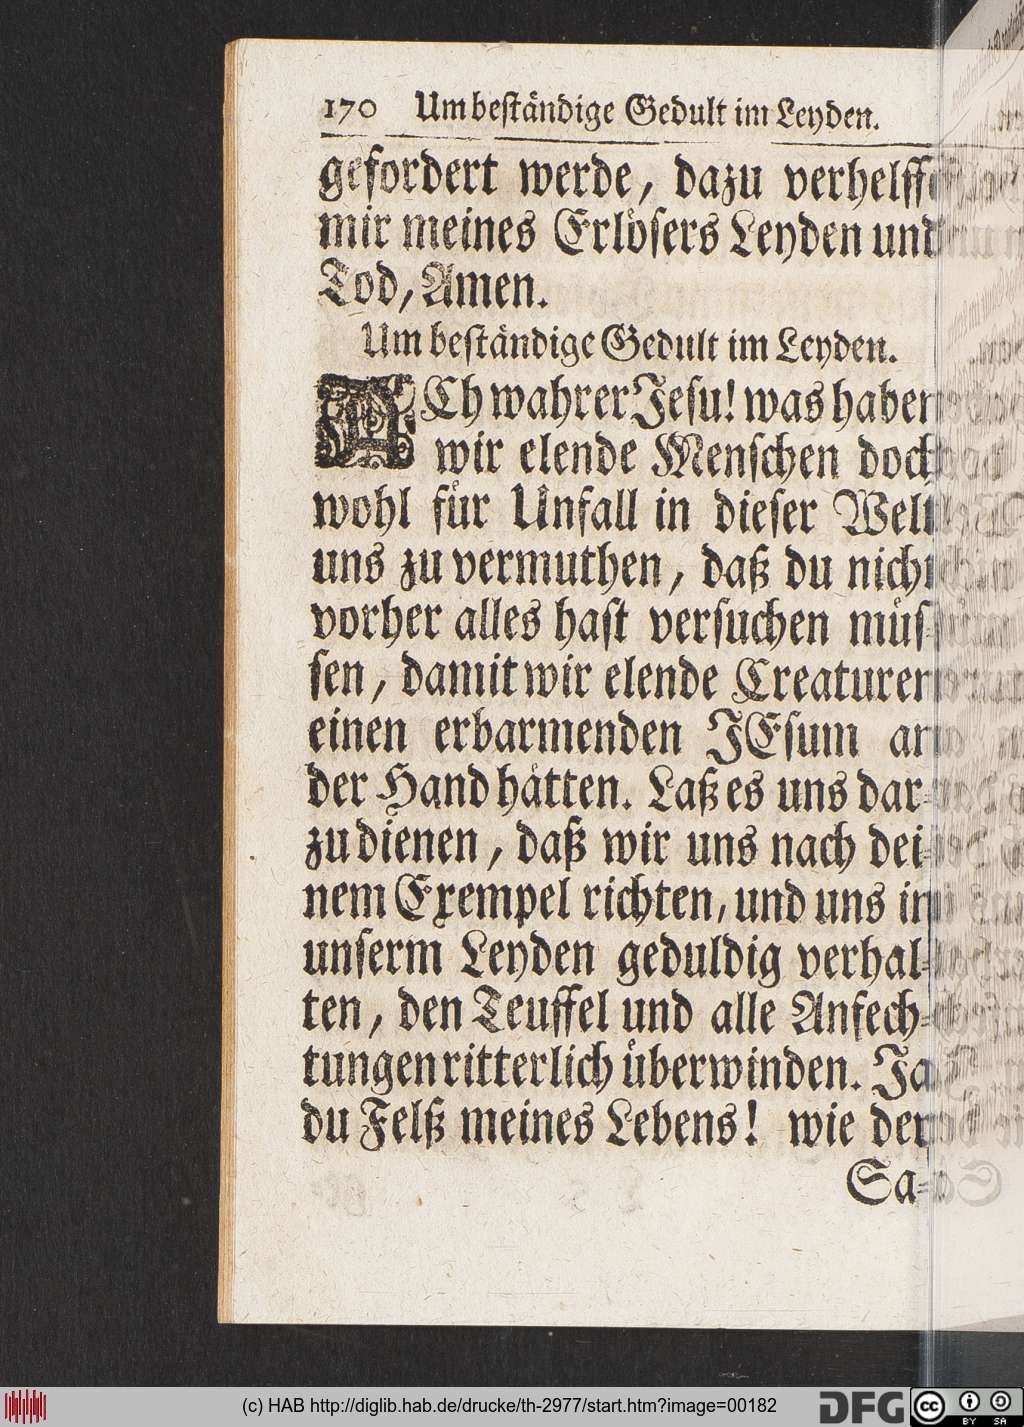 170 Um beständige Gedult im Leyden.
gefordert werde, dazu verhelffe
mir meines Erlösers Leyden und
Tod, Amen.
Um beständige Gedult im Leyden.
ACh wahrer Jesu! was haben
wir elende Menschen doch
wohl für Unfall in dieser Welt
uns zu vermuthen, daß du nicht
vorher alles hast versuchen müs-
sen, damit wir elende Creaturen
einen erbarmenden JEsum an
der Hand hätten. Laß es uns dar-
zu dienen, daß wir uns nach dei-
nem Exempel richten, und uns in
unserm Leyden geduldig verhal-
ten, den Teuffel und alle Anfech-
tungen ritterlich überwinden. Ja
du Felß meines Lebens! wie der
Sa-
(c) HAB http://diglib.hab.de/drucke/th-2977/start.htm?image=00182
DFG
cc BY SA